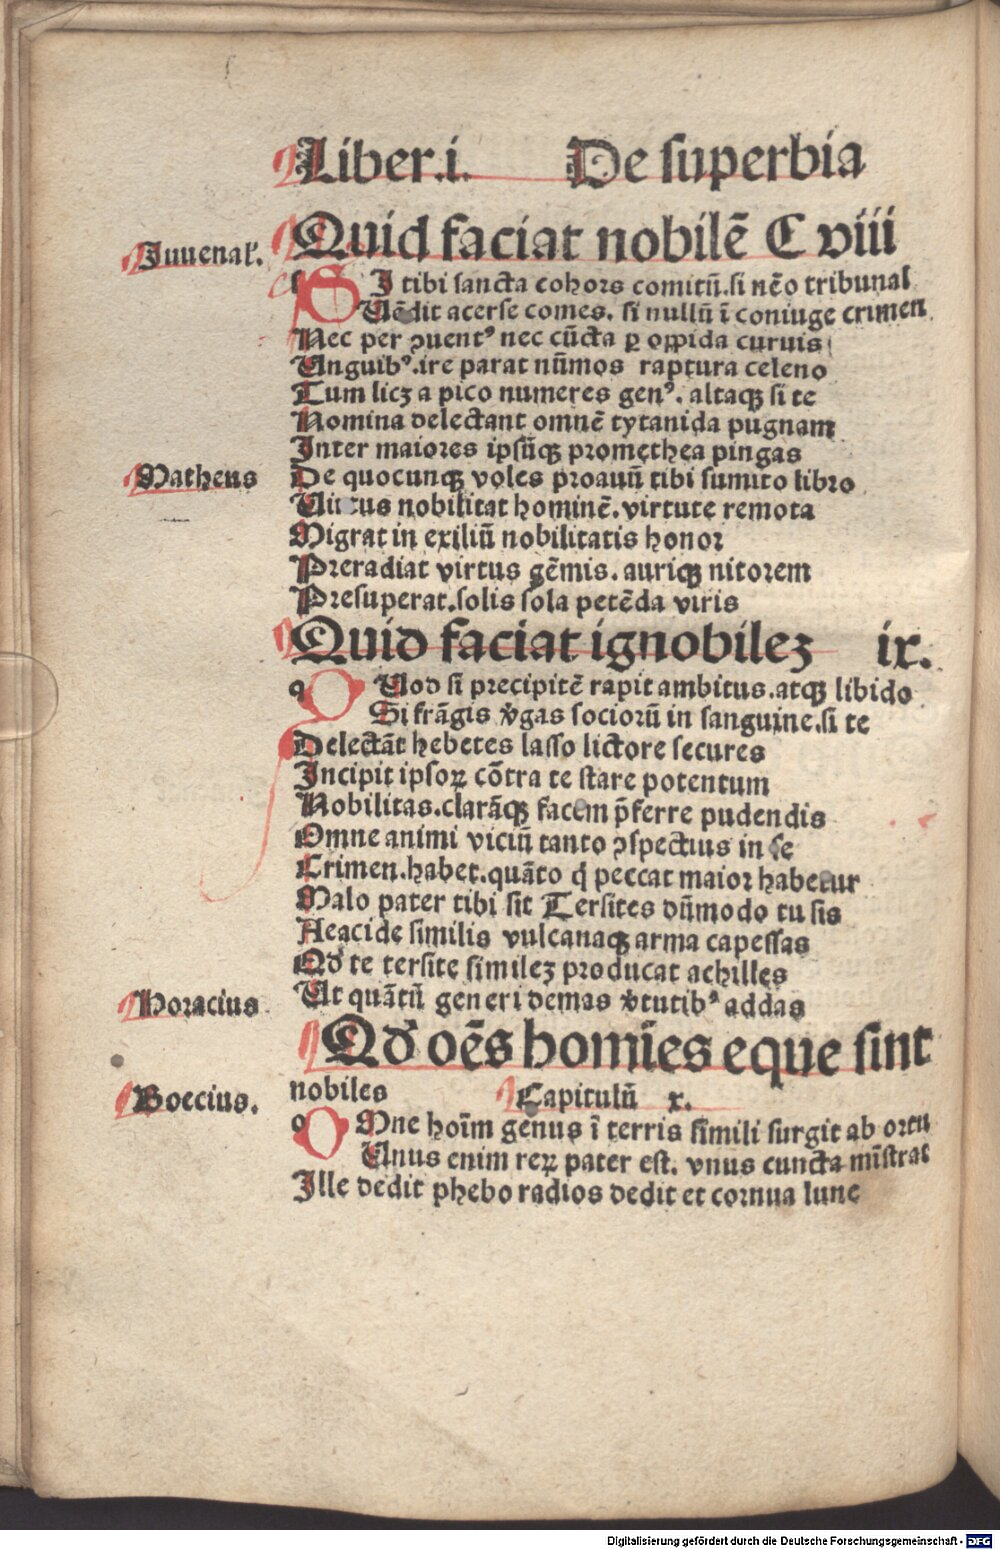 Liber.i. De superbia
Quid faciat nobilē C viii
Juuenal'.
SI tibi sancta cohors comitū.si nēo tribunal
Uēdit acerse comes. si nullū ī coniuge crimen
Nec per ꝯuentꝰ nec cūcta ꝑ oppida curuis
Unguibꝰ.ire parat nūmos raptura celeno
Tum licꝫ a pico numeres genꝰ. altaqꝫ si te
Nomina delectant omnē tytanida pugnam
Inter maiores ipsūqꝫ promethea pingas
Matheus
De quocunqꝫ voles proauū tibi sumito libro
Uirtus nobilitat hominē.virtute remota
Migrat in exiliū nobilitatis honor
Preradiat virtus gēmis.auriqꝫ nitorem
Presuperat.solis sola petēda viris
Quid faciat ignobileꝫ ix.
QUod si precipitē rapit ambitus.atqꝫ libido
Si frāgis v̄gas sociorū in sanguine.si te
Delectāt hebetes lasso lictore secures
Incipit ipsoꝝ cōtra te stare potentum
Nobilitas.clarāqꝫ facem p̄ferre pudendis
Omne animi viciū tanto ꝯspectius in se
Crimen.habet.quāto q̄ peccat maior habetur
Malo pater tibi sit Tersites dūmodo tu sis
Aeacide similis vulcanaqꝫ arma capessas
Qd̄ te tersite simileꝫ producat achilles
Horacius
Ut quātū generi demas v̄tutibꝰ addas
Qd̄ oēs homīes eque sint
nobiles Capitulū x.
Boecius.
OMne hoīm genus ī terris simili surgit ab ortu
Unus enim reꝝ pater est. vnus cuncta mīstrat
Ille dedit phebo radios dedit et cornua lune
Digitalisierung gefördert durch die Deutsche Forschungsgemeinschaft - DFG